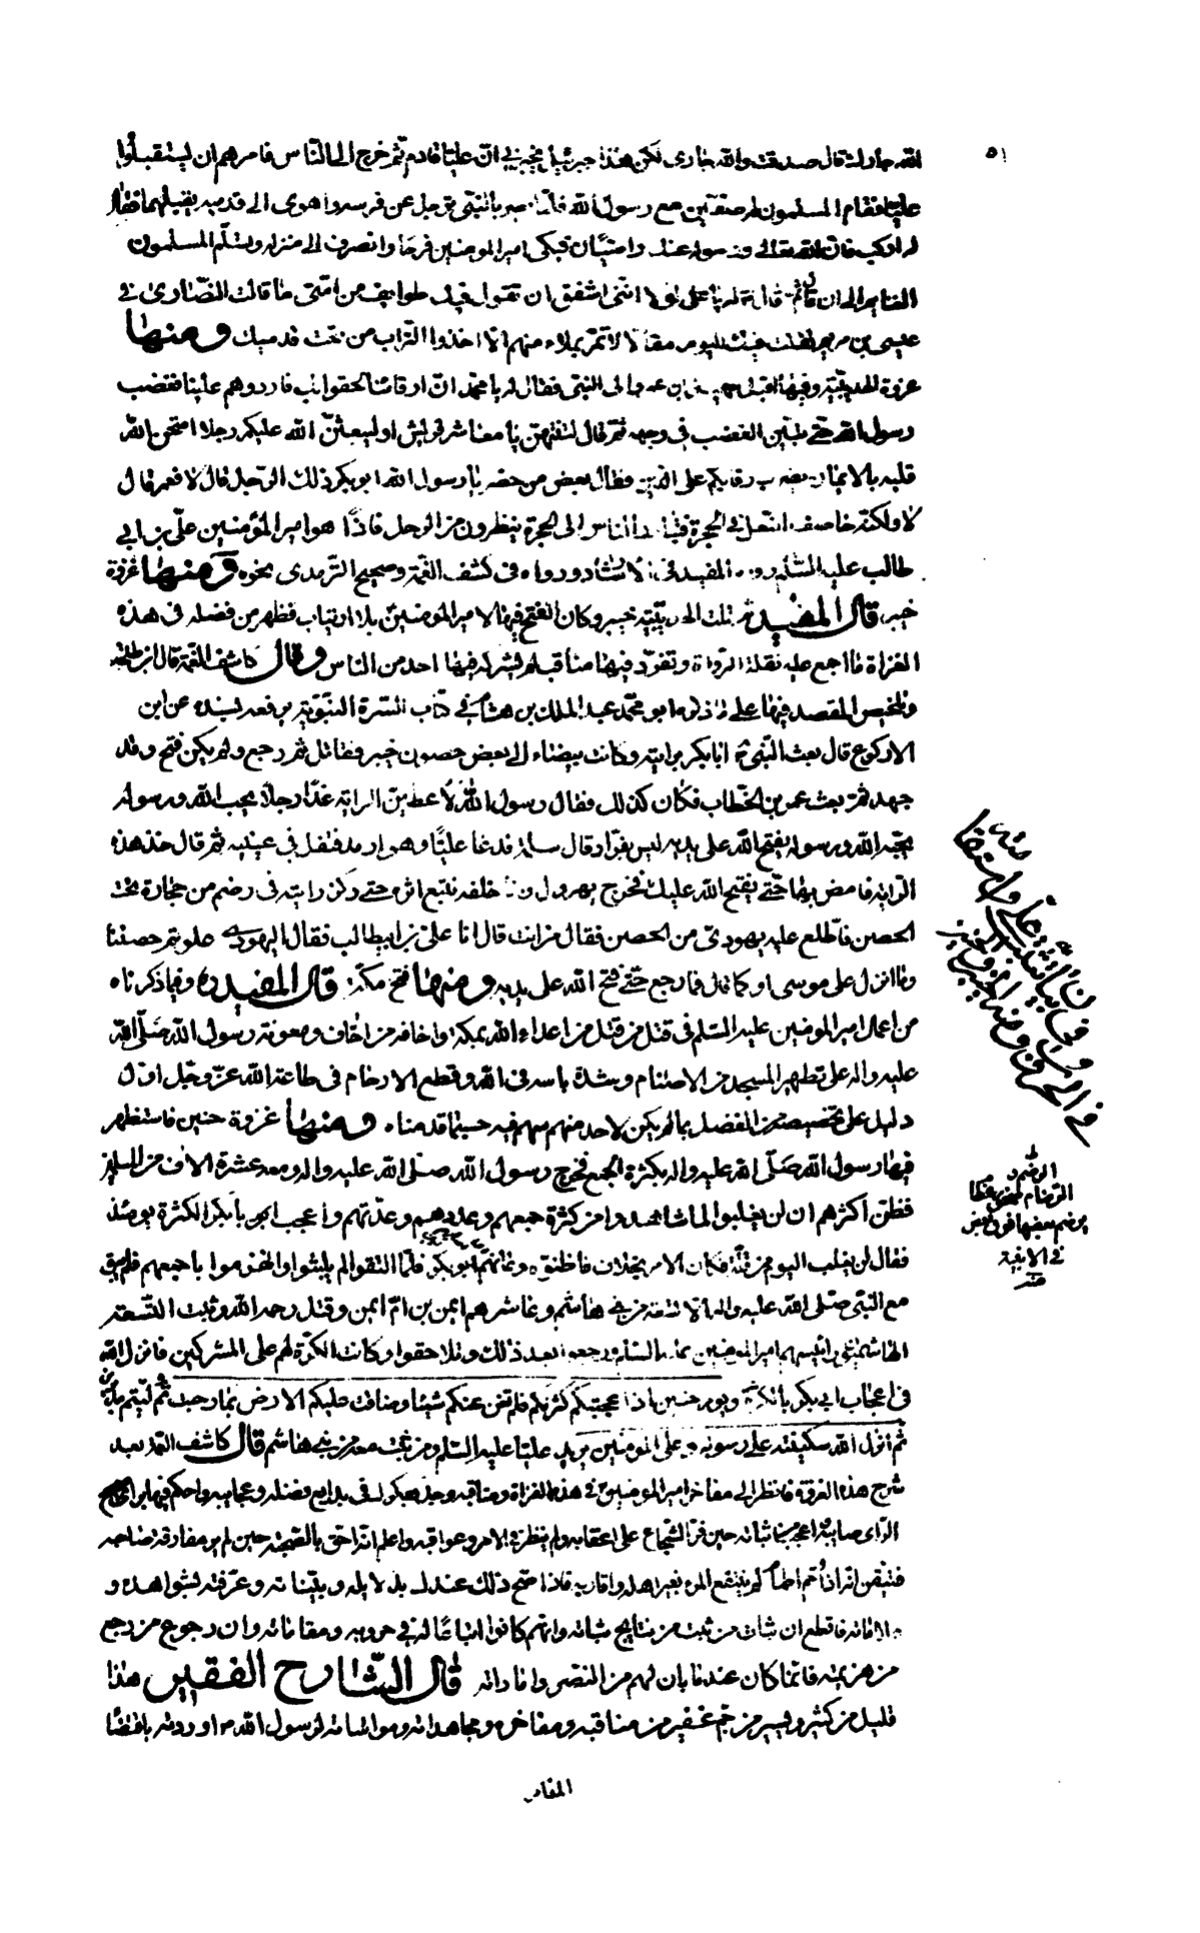 ٥١
الله جارك قال صدقت والله جارى لكن هذا جبرئيل يخبرني ان عليا قادم ثم خرج الى الناس فامرهم ان يستقبلوا
عليا فقام المسلمون له صفين مع رسول الله فلما بصر بالنبي ترجل عن فرسه واهوى الى قدميه يقبلهما فقال
له اركب فان الله تعالى ورسوله عنك راضيان فبكى امير المومنين فرحا وانصرف الى منزله وتسلم المسلمون
الغنايم الى ان قال ثم قال له يا على لولا اننى اشفق ان تقول فيك طوايف من امتى ما قالت النصارى في
عيسى بن مريم لقلت فيك اليوم مقالا لا تمر بملاء منهم الا اخذوا التراب من تحت قدميك ومنها
غزوة الحديبية وفيها اقبل سهيل بن عمرو الى النبي فقال له يا محمد ان ارقائنا لحقوا بك فارددهم علينا فغضب
رسول الله حتى تبين الغضب في وجهه ثم قال لتنتهن يا معاشر قريش او ليبعثن الله عليكم رجلا امتحن الله
قلبه بالايمان يضرب رقابكم على الدين فقال بعض من حضر يا رسول الله ابو بكر ذلك الرجل قال لا فعمر قال
لا ولكنه خاصف النعل في الحجرة فتبادر الناس الى الحجرة ينظرون من الرجل فاذا هو امير المؤمنين علي بن ابي
طالب عليه السلام رواه المفيد في الارشاد ورواه في كشف الغمة وصحيح الترمذى نحوه ومنها غزوة
خيبر قال المفيد ثم تلت الحديبية خيبر وكان الفتح فيها لامير المومنين بلا ارتياب فظهر من فضله في هذه
الغزاة ما اجمع عليه نقلة الرواة وتفرد فيها مناقب لم يشركه فيها احد من الناس وقال كاشف الغمة قال ابن طلحة
وتلخيص المقصد فيها على ما ذكره ابو محمد عبد الملك بن هشام في كتاب السيرة النبوية يرفعه بسنده عن ابن
الاكوع قال بعث النبي ابا بكر برايته وكانت بيضاء الى بعض حصون خيبر فقاتل ثم رجع ولم يكن فتح وقد
جهد ثم بعث عمر بن الخطاب فكان كذلك فقال رسول الله لاعطين الراية غدا رجلا يحب الله ورسوله
يحبه الله ورسوله يفتح الله على يديه ليس بفرار قال سلمة فدعا عليا وهو ارمد فتفل في عينيه ثم قال خذ هذه
الراية فامض بها حتى يفتح الله عليك فخرج يهرول وانا خلفه نتبع اثره حتى ركز رايته في رضم من حجارة تحت
الحصن فاطلع عليه يهودى من الحصن فقال من انت قال انا على بن ابيطالب فقال اليهودى علوتم حصننا
وما انزل على موسى او كما قال فما رجع حتى فتح الله على يديه ومنها فتح مكة قال المفيد ره وفيما ذكرناه
من اعمال امير المومنين عليه السلم في قتل من قتل من اعداء الله بمكة واخافة من اخاف ومعونة رسول الله صلى الله
عليه واله على تطهير المسجد من الاصنام وشدة باسه في الله وقطع الارحام في طاعة الله عز وجل ادل
دليل على تخصيصه من الفضل بما لم يكن لاحد منهم سهم فيه حسبما قدمناه ومنها غزوة حنين فاستظهر
فيها رسول الله صلى الله عليه واله بكثرة الجمع فخرج رسول الله صلى الله عليه واله ومعه عشرة الاف من المسلمين
فظن اكثرهم ان لن يغلبوا لما شاهدوا من كثرة جمعهم وعددهم وعدتهم واعجب ابو بكر الكثرة يومئذ
فقال لن يغلب اليوم من قلة فكان الامر بخلاف ما ظنوه وعانهم ابو بكر فلما التقوا لم يلبثوا وانهزموا باجمعهم فلم يبق
مع النبي صلى الله عليه واله الا تسعة من بني هاشم وعاشرهم ايمن بن ام ايمن وقتل رحمه الله وثبت التسعة
الهاشميون ورئيسهم امير المومنين عليه السلم ورجعوا بعد ذلك وتلاحقوا وكانت الكرة لهم على المشركين فانزل الله
في اعجاب ابي بكر بالكثرة ويوم حنين اذ اعجبتكم كثرتكم فلم تغن عنكم شيئا وضاقت عليكم الارض بما رحبت ثم وليتم مدبرين
ثم انزل الله سكينته على رسوله وعلى المومنين يريد عليا عليه السلم ومن ثبت معه من بني هاشم قال كاشف الغمة بعد
شرح هذه الغزوة فانظر الى مفاخر امير المومنين في هذه الغزاة ومناقبه وجل بفكرك في بدايع فضله وعجايبه واحكم فيها برأي صحيح
الراى صايبه واعجب من ثباته حين فر الشجاع على اعقابه ولم ينظر في الامر وعواقبه واعلم انه احق بالصحبة حين لم ير مفارقة صاحبه
فتيقن انه اذا حم الحمام لم ينتفع المرء بغير اهله واقاربه فاذا صح ذلك عندك بدلايله وبيناته وعرفته بشواهده و
علاماته فاقطع ان ثبات من ثبت من نتايج ثباته وانهم كانوا اتباعا له في حروبه ومقاماته وان رجوع من رجع
من هزيمته فانما كان عندما بان لهم من النصر واماراته قال الشارح الفقير هذا
قليل من كثير ويسير من جم غفير من مناقبه ومفاخره ومجاهداته ومواساته لرسول الله اوردته باقتضاء
المقام
الرضم و
الرضام صخور عظام
يرضم بعضها فوق بعض
في الابنية